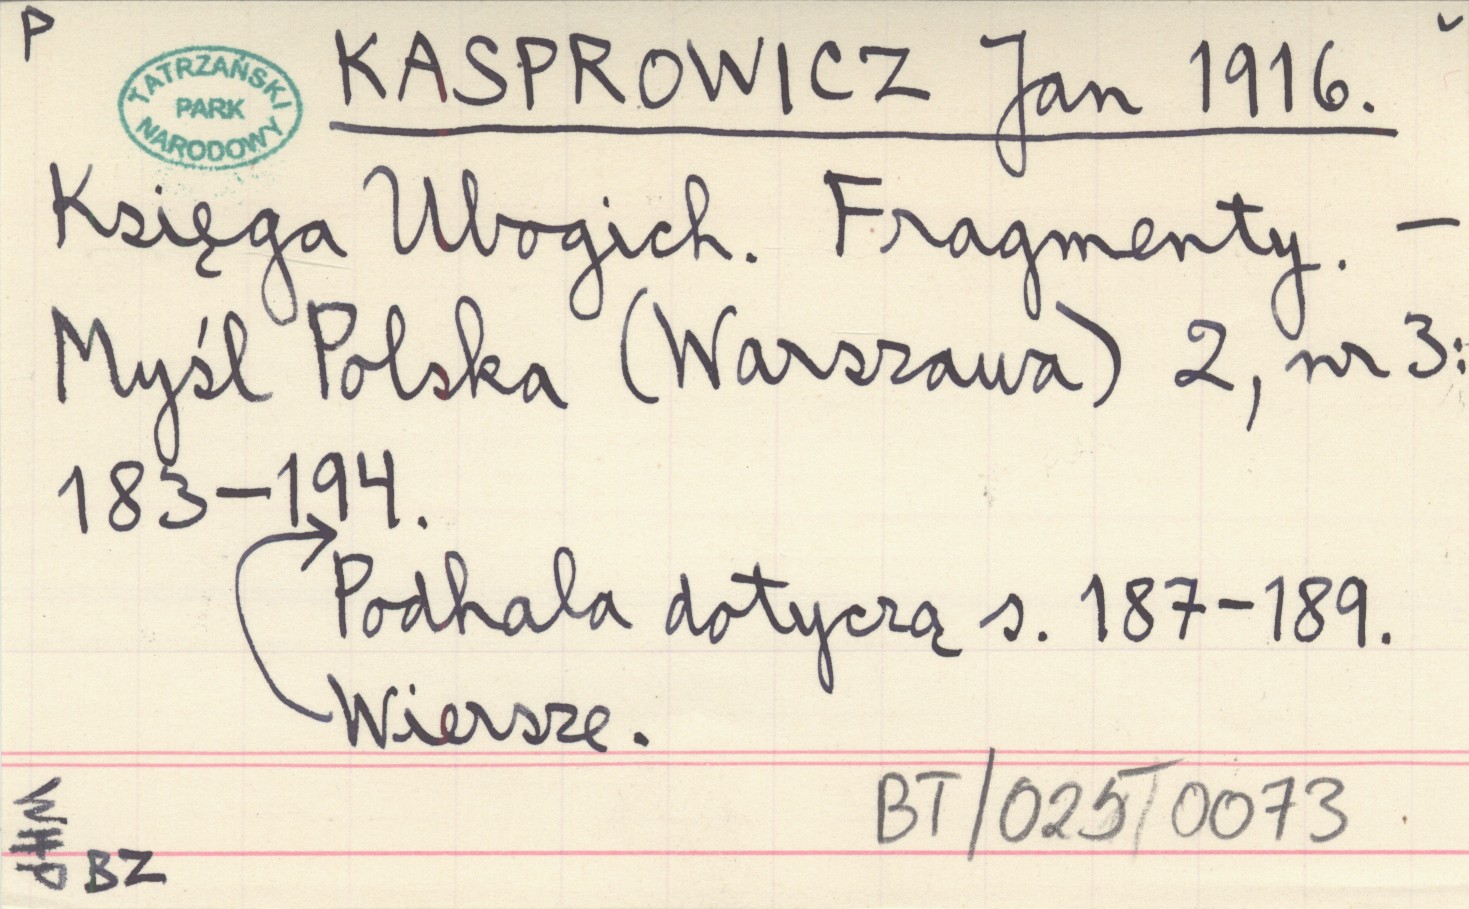 P
TATRZAŃSKI
PARK
NARODOWY
KASPROWICZ Jan 1916.
Księga Ubogich. Fragmenty. –
Myśl Polska (Warszawa) 2, nr 3:
183–194.
Podhala dotyczą s. 187–189.
Wiersze.
BT/025/0073
BZ